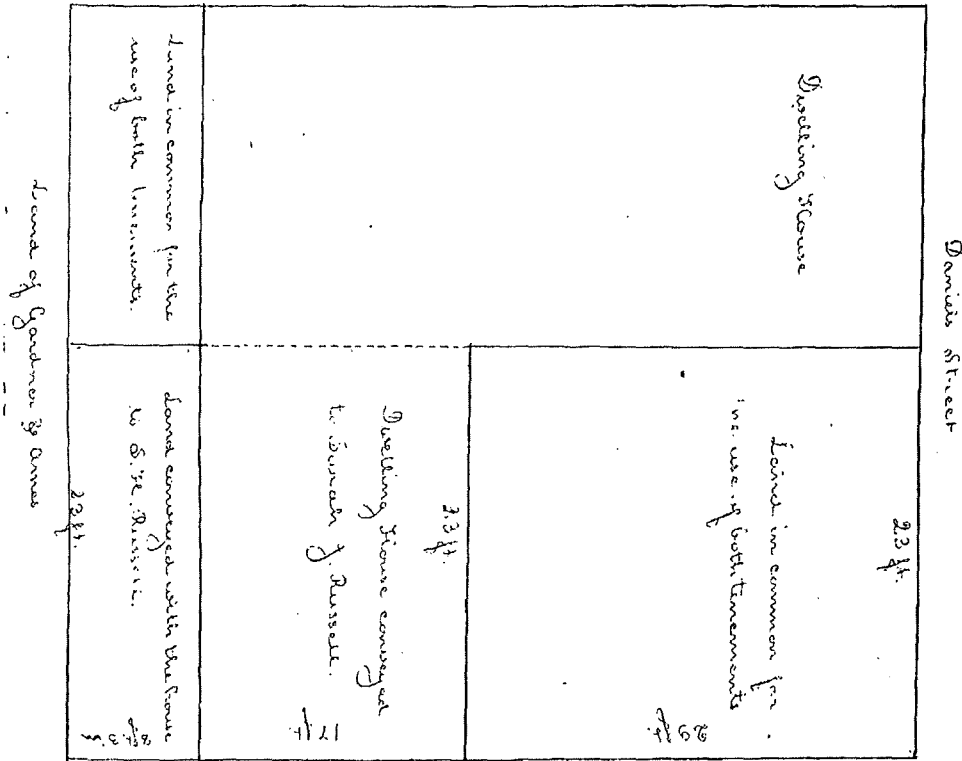 Daniels Street
Dwelling House
23 ft.
Land in common for
the use of both tenements
29 ft.
23 ft.
Dwelling House conveyed
to Sarah J. Russell.
17 ft.
Land in common for the
use of both tenements.
Land conveyed with the house
to S. Russell.
8 ft. 3
23 ft.
Land of Gardner & Ames